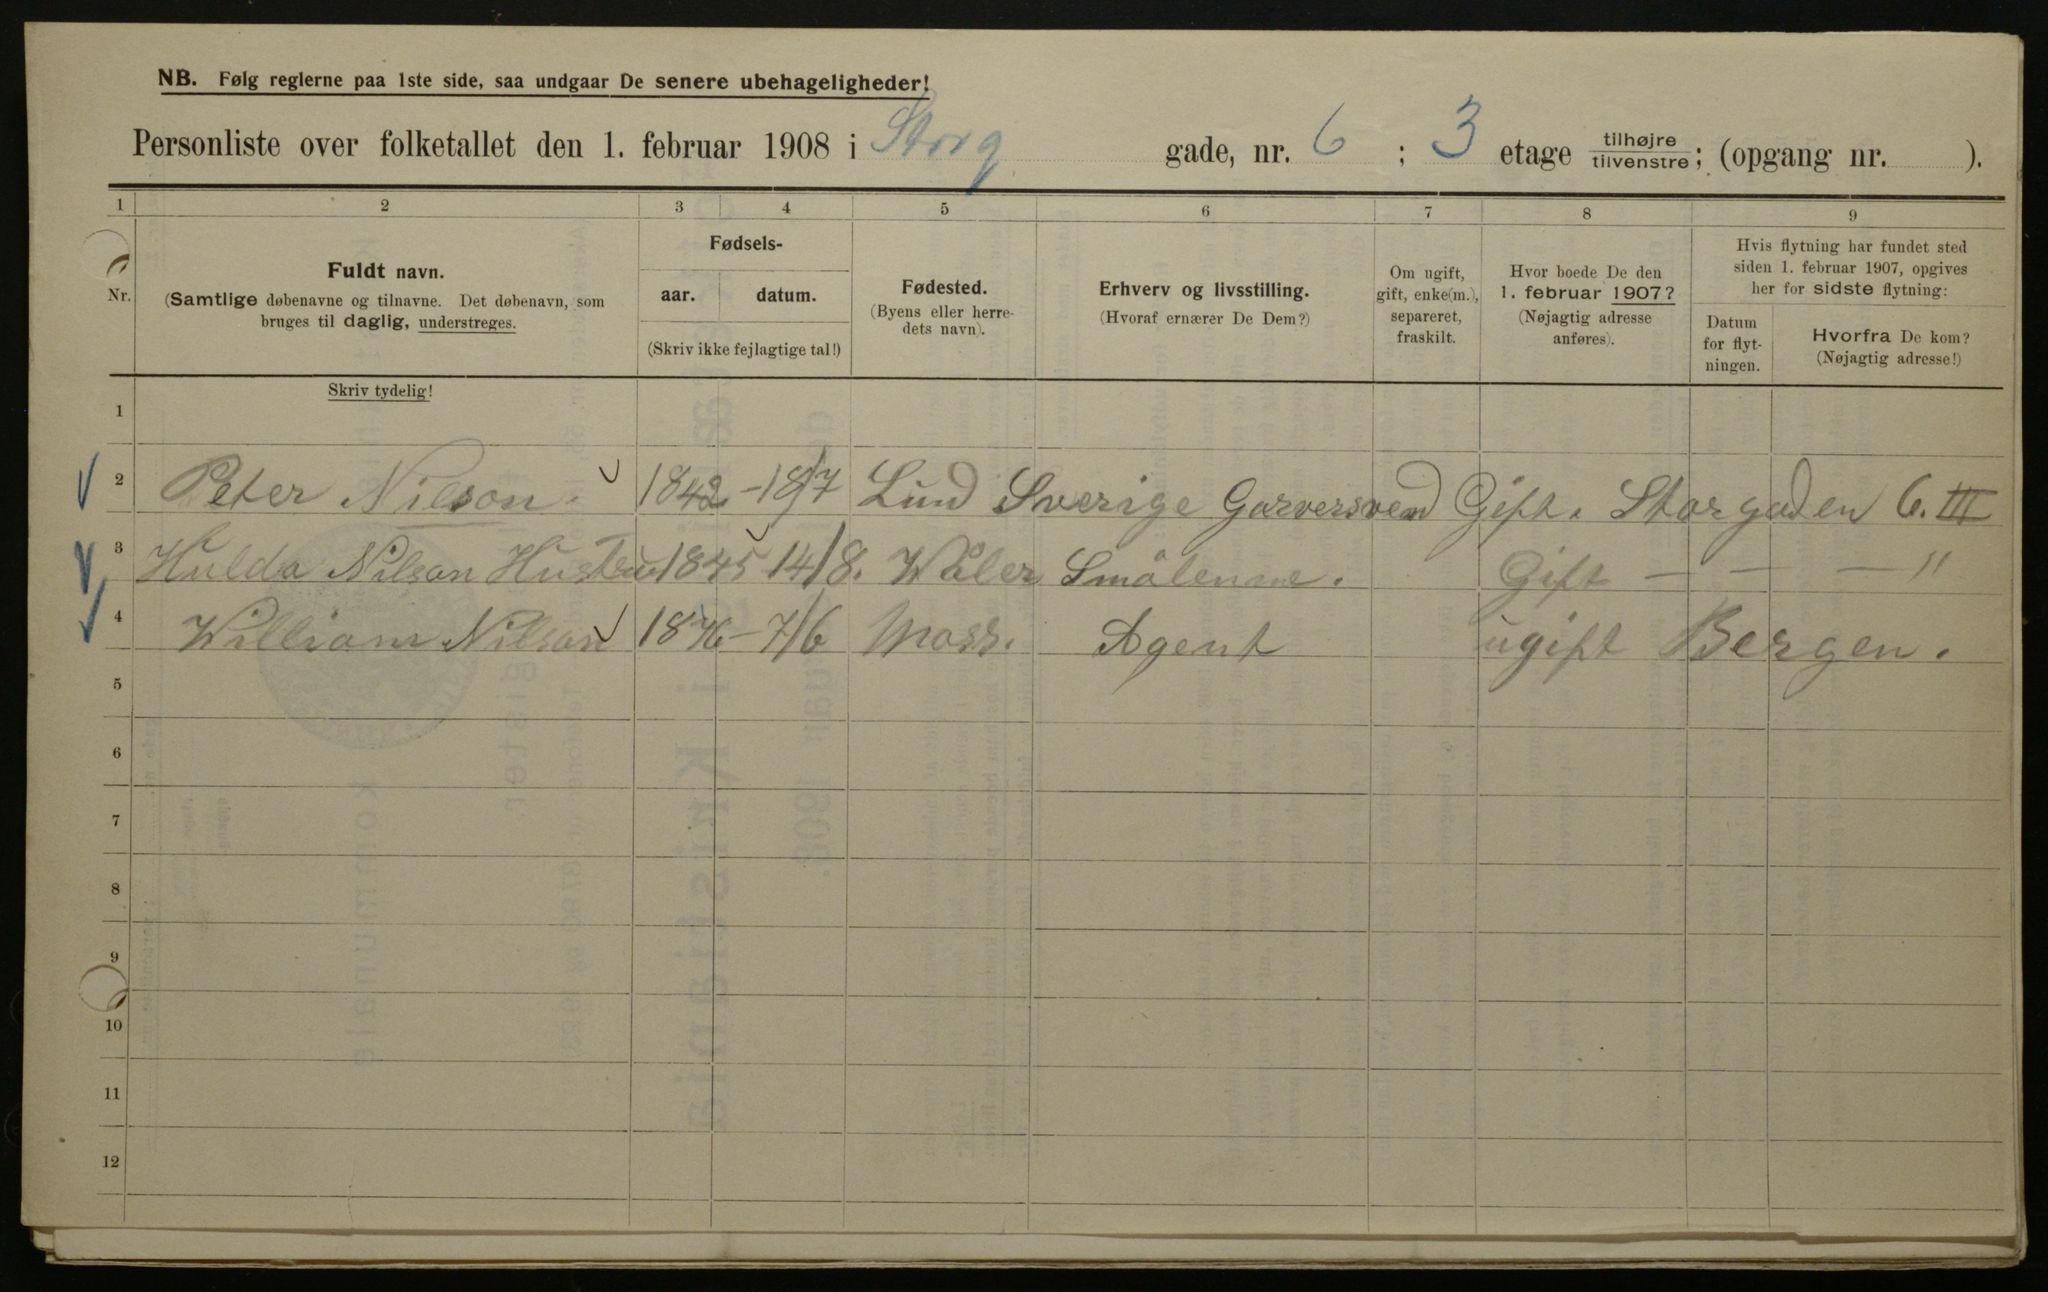 NB. Følg reglerne paa 1ste side, saa undgaar De senere ubehageligheder!
Personliste over folketallet den 1. februar 1908 i Storg gade, nr. 6 ; 3 etage tilhøjre/tilvenstre; (opgang nr. ).
1 2 3 4 5 6 7 8 9
Nr.
Fuldt navn.
(Samtlige døbenavne og tilnavne. Det døbenavn, som
bruges til daglig, understreges.
Skriv tydelig!
Fødsels-
aar. datum.
(Skriv ikke fejlagtige tal!)
Fødested.
(Byens eller herre-
dets navn).
Erhverv og livsstilling.
(Hvoraf ernærer De Dem?)
Om ugift,
gift, enke(m.),
separeret,
fraskilt.
Hvor boede De den
1. februar 1907?
(Nøjagtig adresse
anføres).
Hvis flytning har fundet sted
siden 1. februar 1907, opgives
her for sidste flytning:
Datum
for flyt-
ningen.
Hvorfra De kom?
(Nøjagtig adresse!)
1
2 Peter Nilson. 1842 - 18/7 Lund Sverige Garversvend Gift. Storgaden 6. III
3 Hulda Nilson Hustru 1845 - 14/8. Wåler Smålenene. Gift — — — "
4 William Nilson 1876 - 7/6 Moss. Agent ugift Bergen.
5
6
7
8
9
10
11
12